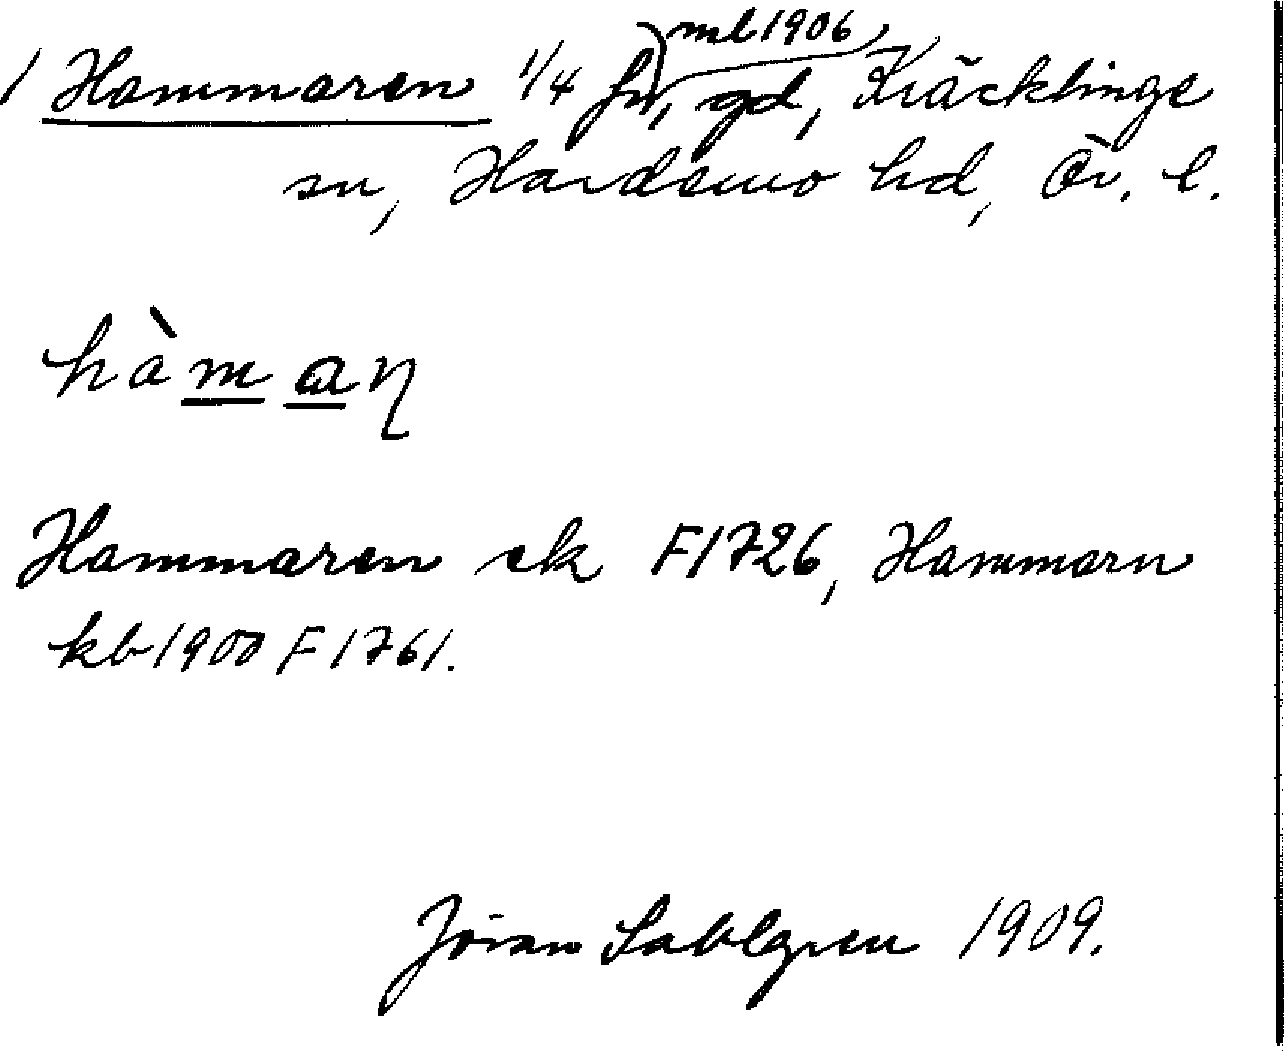 ml1906
1 Hammaren 1/4 fm, gd, Kräcklinge
sn, Hardemo hd, Ör. l.
hàmaɳ
Hammaren ek F1726, Hammarn
kb1900 F1761.
Jöran Sahlgren 1909.